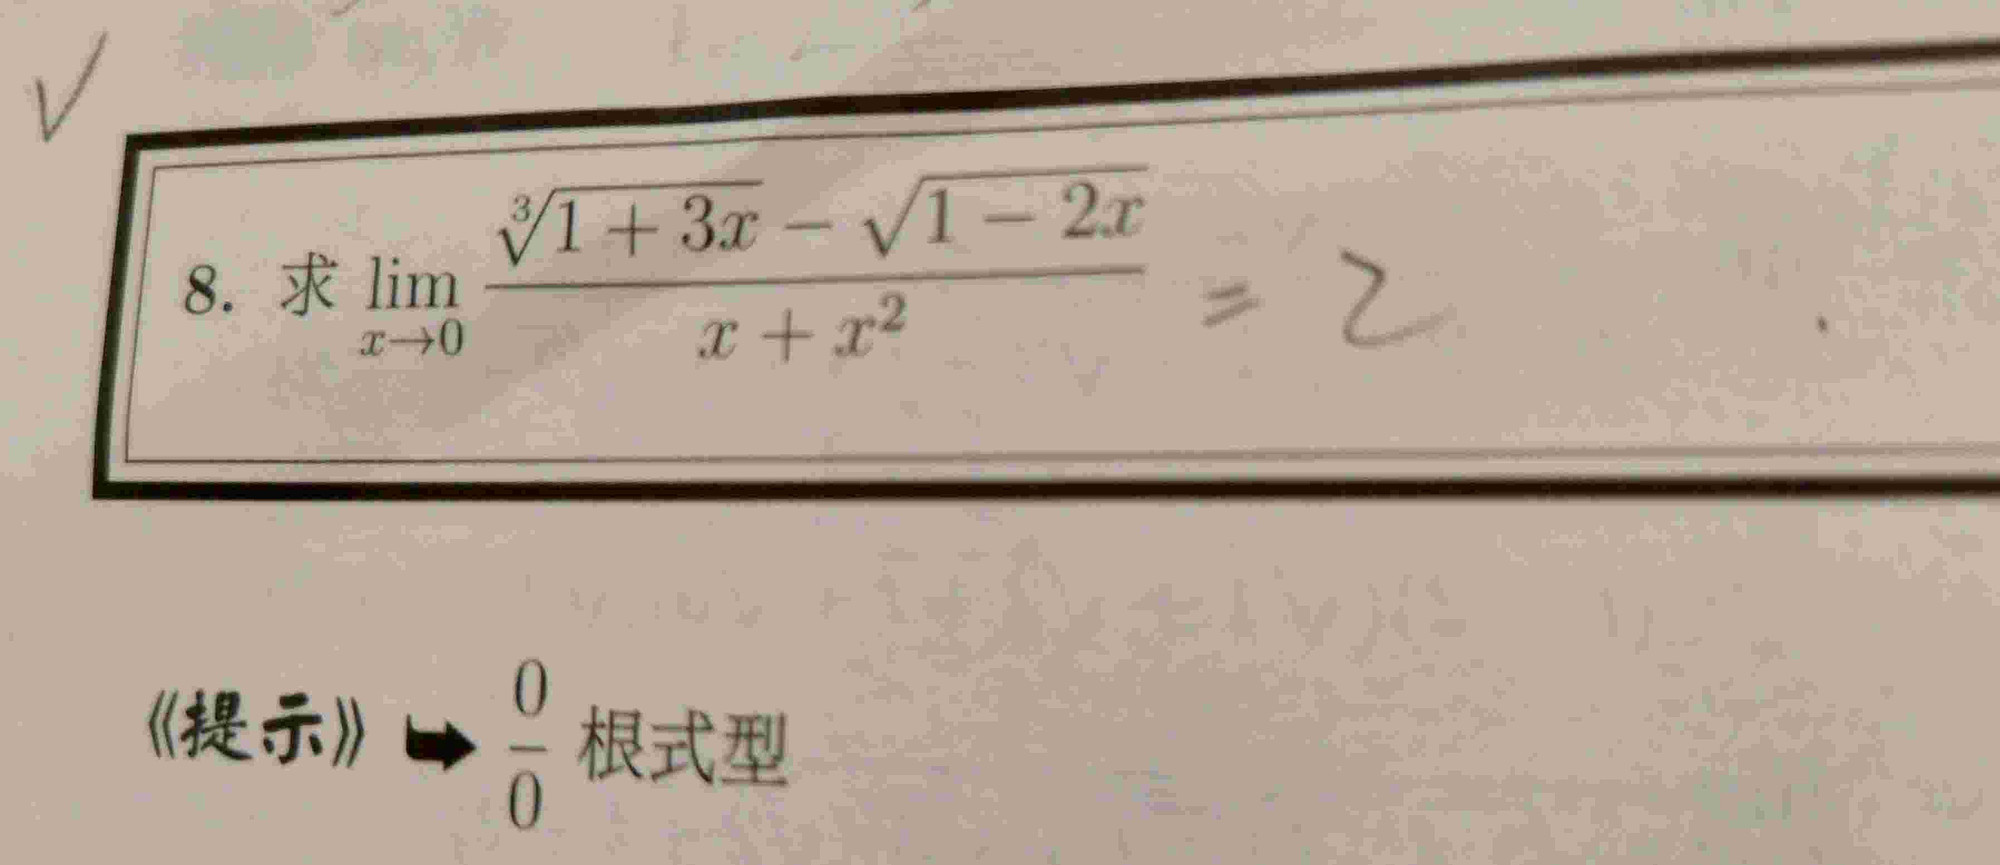 √
8. 求 $\lim_{x \to 0} \frac{\sqrt[3]{1+3x} - \sqrt{1-2x}}{x+x^2}$ = 2
《提示》 ➥ $\frac{0}{0}$ 根式型